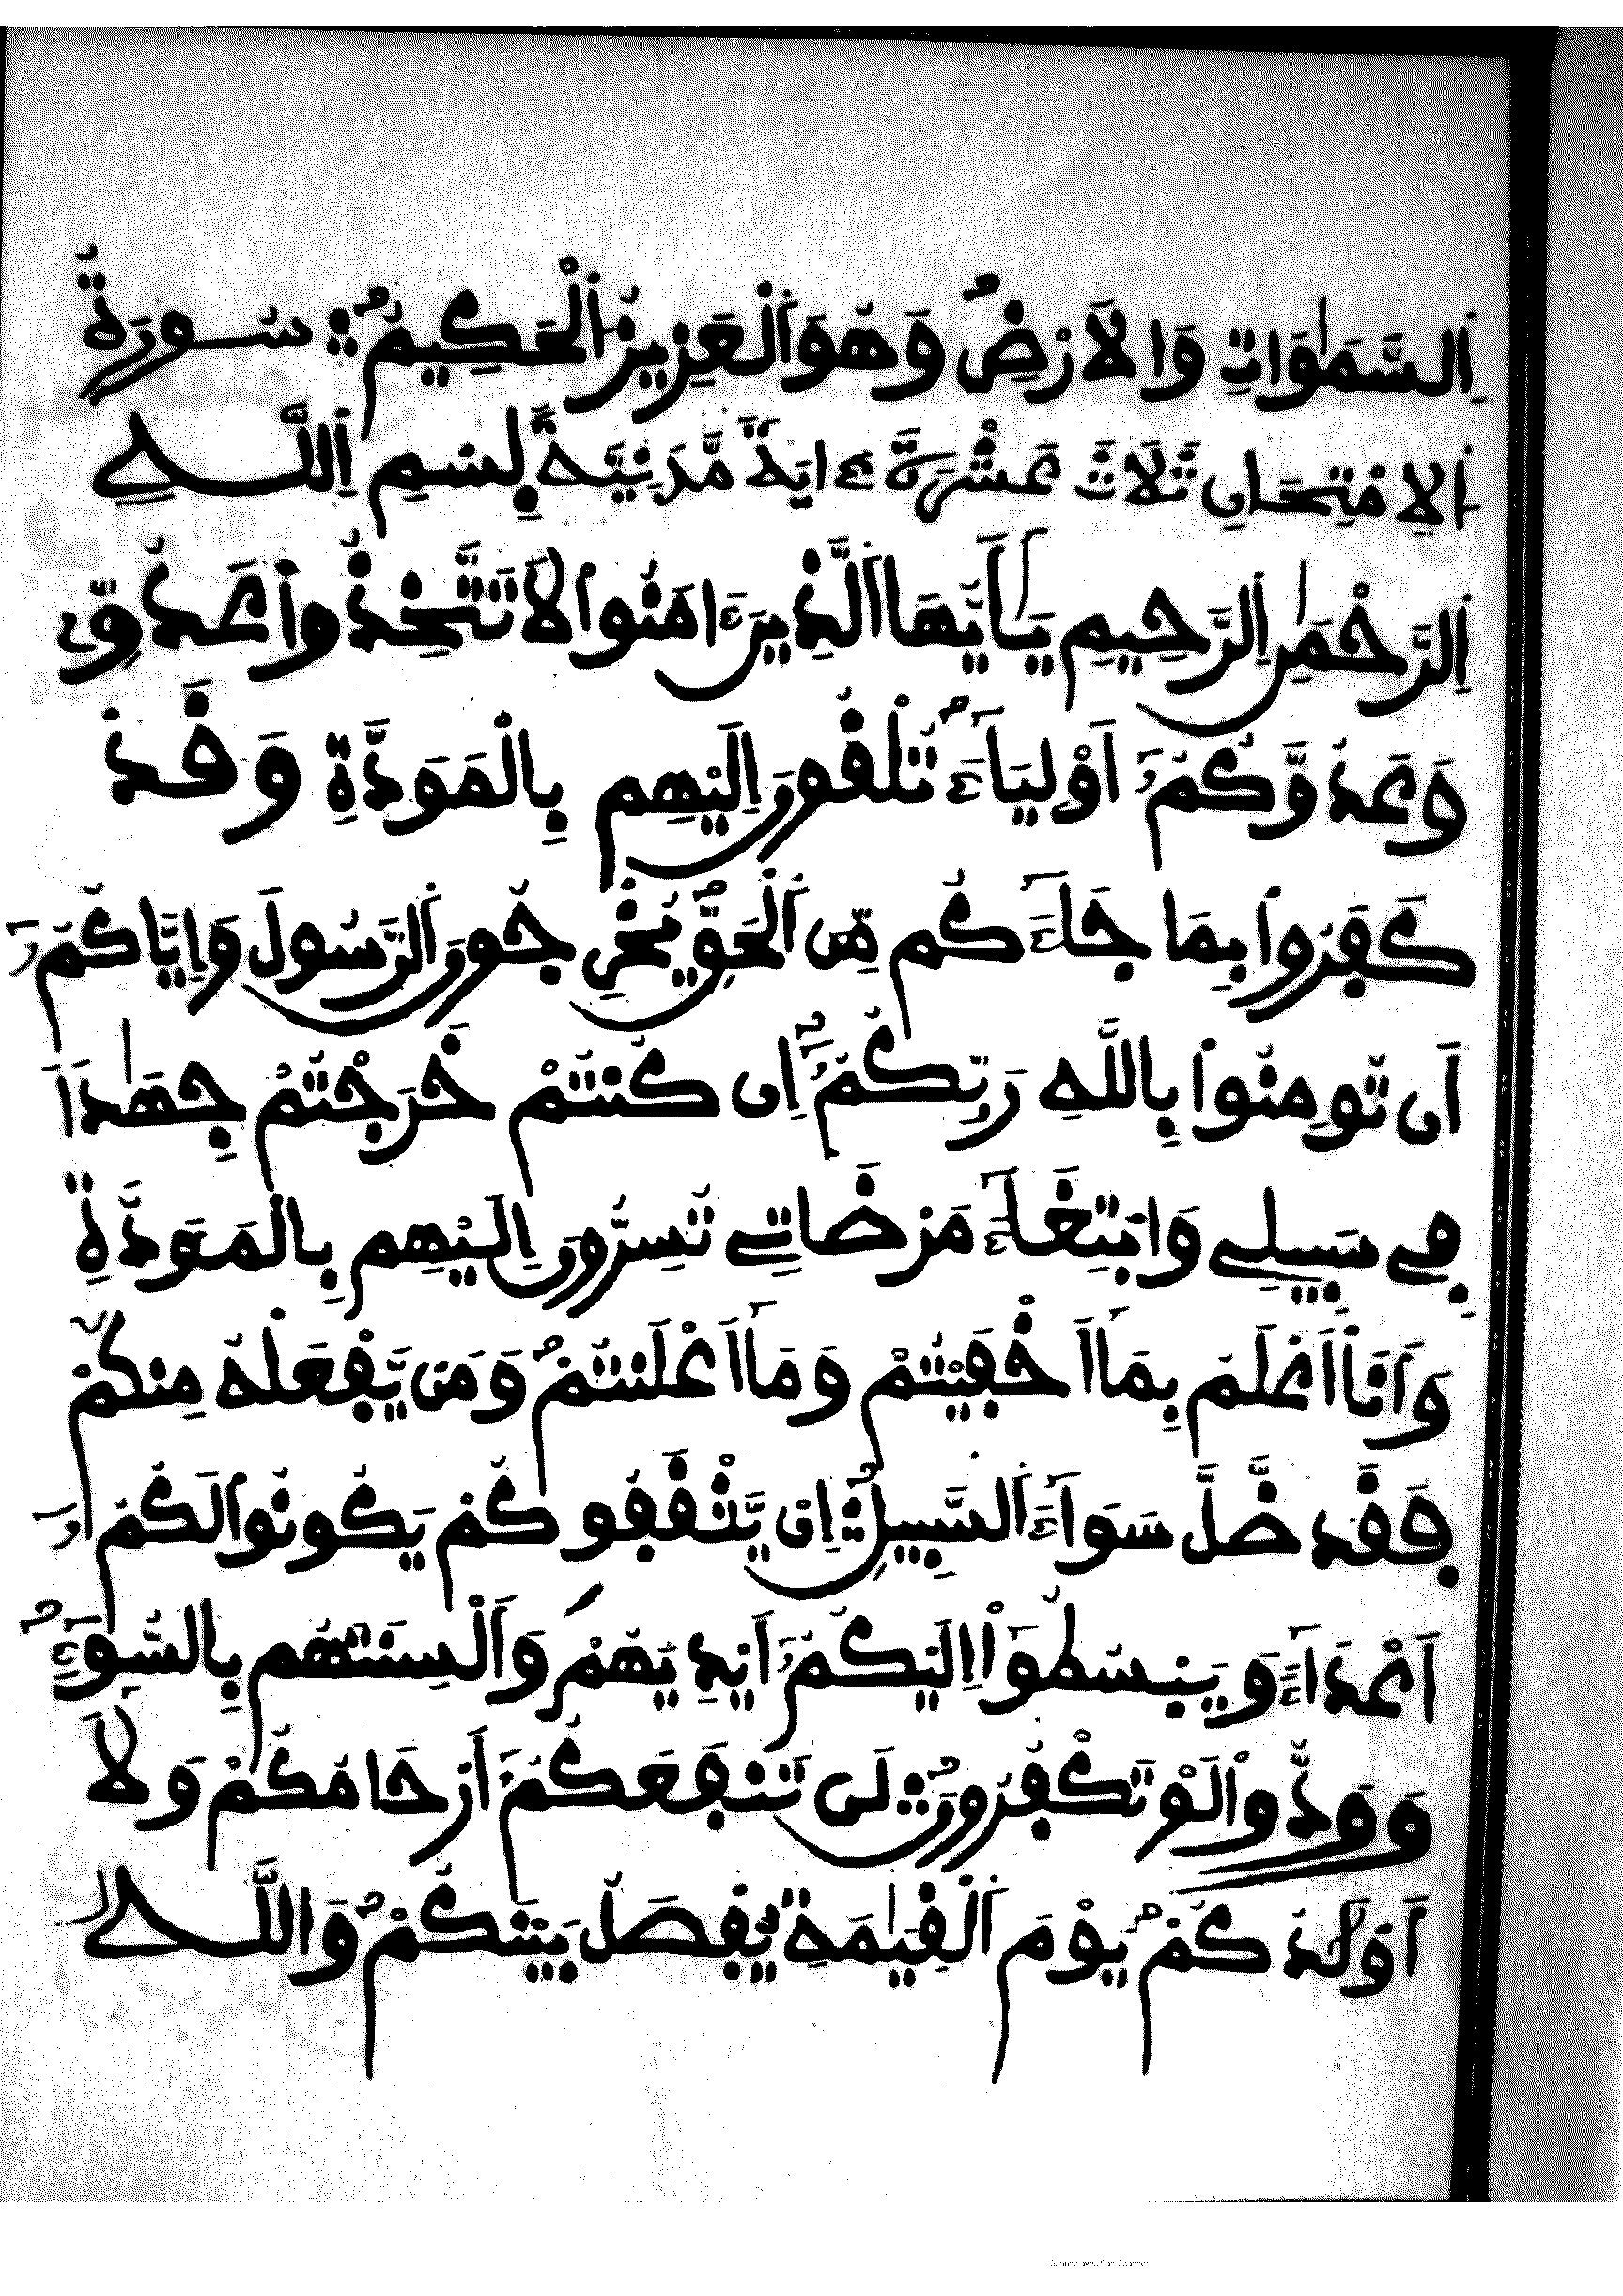 اَ۬لسَّمَٰوَٰتِ وَالَارْضِ وَهُوَ اَ۬لْعَزِيزُ اُ۬لْحَكِيمُ سُورَةُ
اُ۬لِامْتِحَانِ ثَلَاثَ عَشْرَةَ ءَايَةً مَّدَنِيَّةٌ بِسْمِ اِ۬للَّهِ
اِ۬لرَّحْمَٰنِ اِ۬لرَّحِيمِ يَٰأَيُّهَا اَ۬لَّذِينَ ءَامَنُوا لَا تَتَّخِذُوا عَدُوِّي
وَعَدُوَّكُمُ أَوْلِيَآءَ تُلْقُونَ إِلَيْهِم بِالْمَوَدَّةِ وَقَدْ
كَفَرُوا بِمَا جَآءَكُم مِّنَ اَ۬لْحَقِّ يُخْرِجُونَ اَ۬لرَّسُولَ وَإِيَّاكُمُ
أَن تُومِنُوا بِاللَّهِ رَبِّكُمُ إِن كُنتُمْ خَرَجْتُمْ جِهَٰدًا
فِي سَبِيلِي وَابْتِغَآءَ مَرْضَاتِي تُسِرُّونَ إِلَيْهِم بِالْمَوَدَّةِ
وَأَنَا أَعْلَمُ بِمَا أَخْفَيْتُمْ وَمَا أَعْلَنتُمْ وَمَن يَّفْعَلْهُ مِنكُمْ
فَقَد ضَّلَّ سَوَآءَ اَ۬لسَّبِيلِ إِن يَّثْقَفُوكُمْ يَكُونُوا لَكُمُ
أَعْدَآءً وَيَبْسُطُوا إِلَيْكُمُ أَيْدِيَهُمْ وَأَلْسِنَتَهُم بِالسُّوءِ
وَوَدُّوا لَوْ تَكْفُرُونَ لَن تَنفَعَكُمُ أَرْحَامُكُمْ وَلَا
أَوْلَٰدُكُمْ يَوْمَ اَ۬لْقِيَٰمَةِ يُفْصَلُ بَيْنَكُمْ وَاللَّهُ